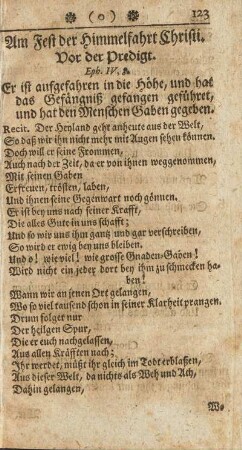 ( o ) 123
Am Fest der Himmelfahrt Christi.
Vor der Predigt.
Eph. IV. 8.
Er ist aufgefahren in die Höhe, und hat
das Gefängniß gefangen geführet,
und hat den Menschen Gaben gegeben.
Recit. Der Heyland geht anheute aus der Welt,
So daß wir ihn nicht mehr mit Augen sehen können.
Doch will er seine Frommen,
Auch nach der Zeit, da er von ihnen weggenommen,
Mit seinen Gaben
Erfreuen, trösten, laben,
Und ihnen seine Gegenwart noch gönnen.
Er ist bey uns nach seiner Krafft,
Die alles Gute in uns schafft;
Und so wir uns ihm ganz und gar verschreiben,
So wird er ewig bey uns bleiben.
Und o! wie viel! wie grosse Gnaden-Gaben!
Wird nicht ein jeder dort bey ihm zu schmecken ha-
ben!
Wann wir an jenen Ort gelangen,
Wo so viel tausend schon in seiner Klarheit prangen.
Drum folget nur
Der heilgen Spur,
Die er euch nachgelassen,
Aus allen Kräfften nach;
Ihr werdet, müßt ihr gleich im Tod erblaßen,
Aus dieser Welt, da nichts als Weh und Ach,
Dahin gelangen,
Wo